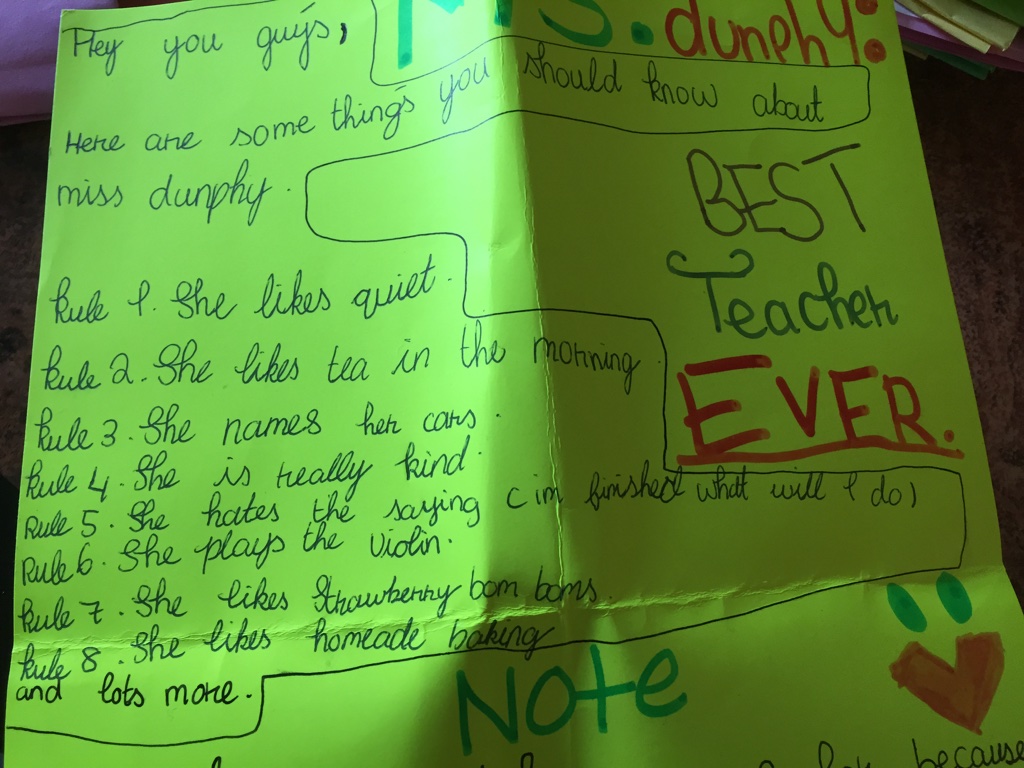 Ms. dunphy:
Hey you guys,
Here are some things you should know about
miss dunphy.
BEST
Teacher
EVER.
Rule 1. She likes quiet.
Rule 2. She likes tea in the morning.
Rule 3. She names her cars.
Rule 4. She is really kind.
Rule 5. She hates the saying (im finished what will I do)
Rule 6. She plays the violin.
Rule 7. She likes Strawberry bom boms.
Rule 8. She likes homeade baking
and lots more.
Note
because